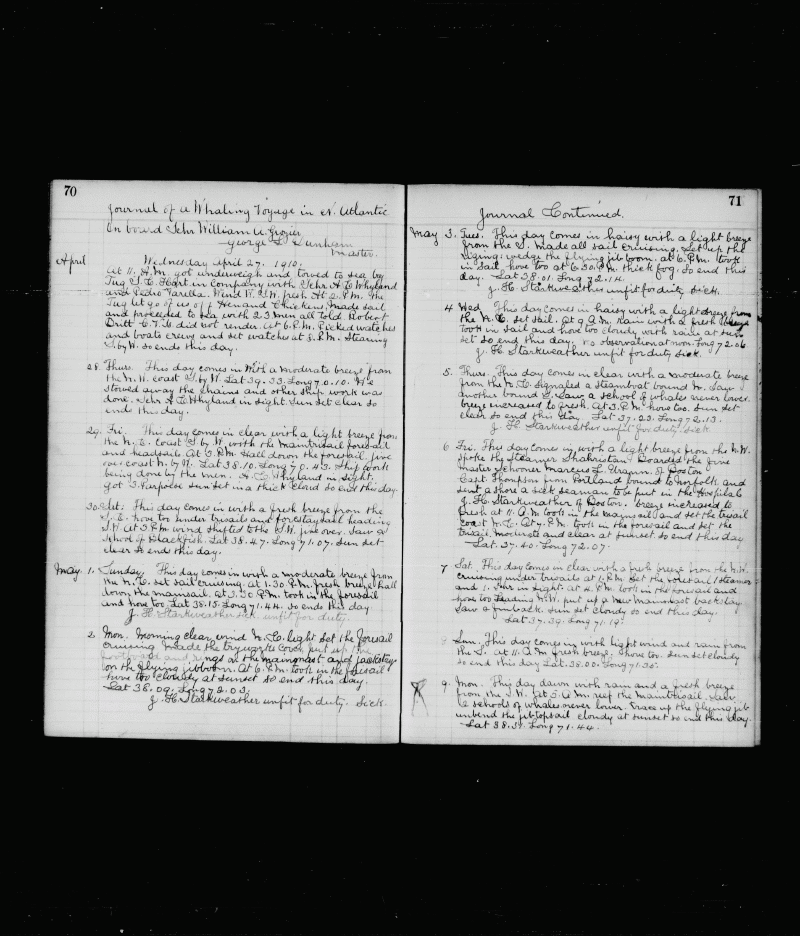 70
Journal of a Whaling Voyage in N. Atlantic
On board Schr William A. Grozier
George L. Dunham
Master.
Wednesday April 27. 1910.
April
At 11. A.M. got underweigh and towed to sea by
Tug J. T. Hart in company with Schr A. E. Whyland
and Pedro Varella. Wind W. S.W. fresh At 2. P.M. the
Tug let go of us off Hen and Chickens, Made sail
and proceeded to sea with 23 men all told Robert
Britt did not render. At 6.P.M. Picked watches
and boats crews and set watches at 8.P.M. Stearing
S. by W. so ends this day.
28. Thurs. This day comes in with a moderate breeze from
the N.W. coast S. by W. Lat 39.33. Long 70.10. We
stowed away the chains and other ship work was
done. Schr A. E. Whyland in sight. Sun set clear so
ends this day.
29. Fri. This day comes in clear with a light breeze from
the N.E. coast S by W. with the maintrisail foresail
and headsails. At 3.P.M. Hall down the foresail. jive
over coast N. by W. Lat 38.10. Long 70.43. Ship work
being done by the men. A. E. Whyland in sight.
Got 1. Purpoise sunset in a thick cloud so end this day.
30. Sat. This day comes in with a fresh breeze from the
S. E. hove too under trisails and forestaysail heading
S.W. At 3.P.M. wind shifted to the S.W. jive over. Saw a
school of Blackfish. Lat 38.47. Long 71.07. Sun set
clear so ends this day.
May. 1. Sunday. This day comes in with a moderate breeze from
the N.E. set sail cruising. at 1.30 P.M. fresh breeze hall
down the mainsail. at 3.30 P.M. took in the foresail
and hove too. Lat 38.15. Long 71.44. so ends this day
J. H. Starkweather sick. unfit for duty.
2. Mon. Morning clear, wind N. Ed. light set the foresail
cruising made the tryworks cover, put up the
and rings on the mainmast, and jackstay
on the flying jibboom. At 6.P.M. took in the foresail
hove too cloudy at sunset so end this day.
Lat 38.09. Long 72.03.
J. H. Starkweather unfit for duty. Sick.
71
Journal Continued.
May 3. Tues. This day comes in haisy with a light breeze
from the S. Made all sail cruising. Set up the
riging; wedge the flying jib boom. at 6.P.M. took
in sail, hove too at 6.30 P.M. thick fog. so end this
day. Lat 38.01. Long 72.14.
J. H. Starkweather unfit for duty. Sick.
4 Wed. This day comes in haisy with a light breeze from
the N.E. set sail. At 9 A.M. Rain with a fresh breeze
took in sail and hove too cloudy with rain at sun
set so end this day. no observation at noon. Long 72.06
J. H. Starkweather unfit for duty sick.
5. Thurs. This day comes in clear with a moderate breeze
from the N.E. signaled a steamboat bound N. Saw
another bound S. Saw a school of whales never lower.
breeze increased to fresh. At 3.P.M. hove too. Sun set
clear so end this day. Lat 37.23. Long 72.13.
J. H. Starkweather unfit for duty. Sick.
6 Fri. This day comes in with a light breeze from the N.W.
spoke the Steamer Shahristan. Boarded the five
master Schooner Marcus L. Urann, of Boston
Capt. Thompson from Portland bound to Norfolk. and
sent a shore a sick seaman to be put in the hospital
J. H. Starkweather of Boston. breeze increased to
fresh at 11. A.M. took in the mainsail and set the trisail
coast N.E. At 7. P.M. took in the foresail and set the
trisail, moderate and clear at sunset. so end this day
Lat. 37.40. Long 72.07.
7 Sat. This day comes in clear with a fresh breeze from the N.W.
cruising under trisails at 1.P.M. set the foresail 1 steamer
and 1. Schr in sight. At 4. P.M. took in the foresail and
hove too heading N.W. put up a new mainmast backstay
Saw a finback. sun set cloudy so end this day.
Lat 37.39. Long 71.19.
8 Sun. This day comes in with light wind and rain from
the S. at 11. A.M. fresh breeze, hove too. Sun set cloudy
so end this day Lat 38.00. Long 71.30.
9. Mon. This day dawn with rain and a fresh breeze
from the S.W. At 5. A.M. reef the maintrisail, Saw
2 schools of whales never lower. Brace up the flying jib
unbend the jibtopsail cloudy at sunset so end this day.
Lat 38.31. Long 71.44.